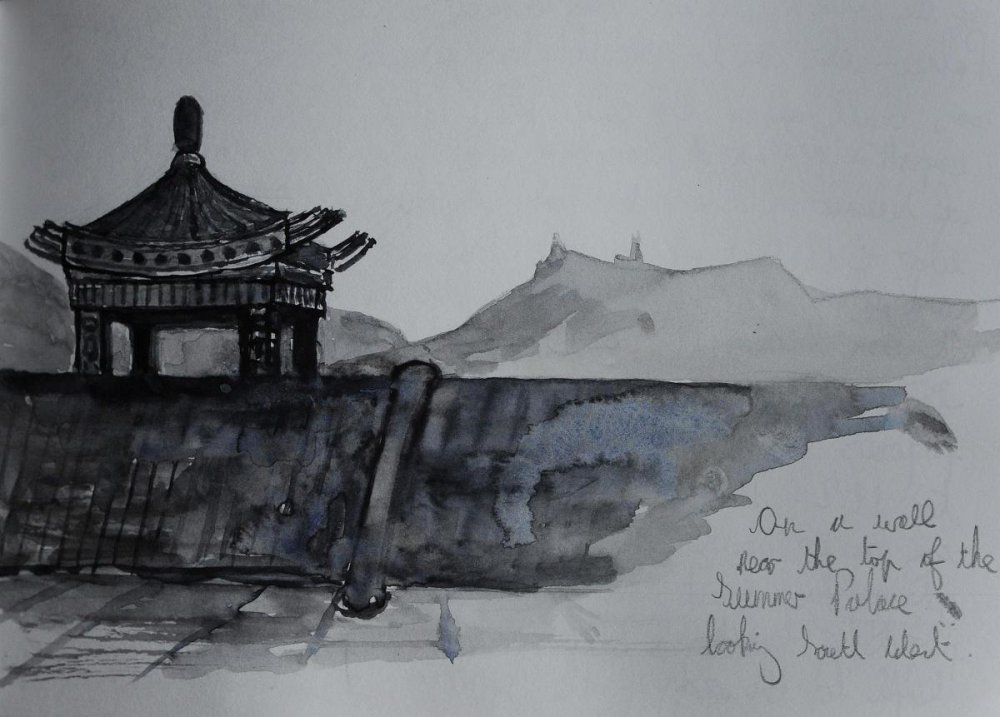 On a wall
near the top of the
Summer Palace
looking South West.